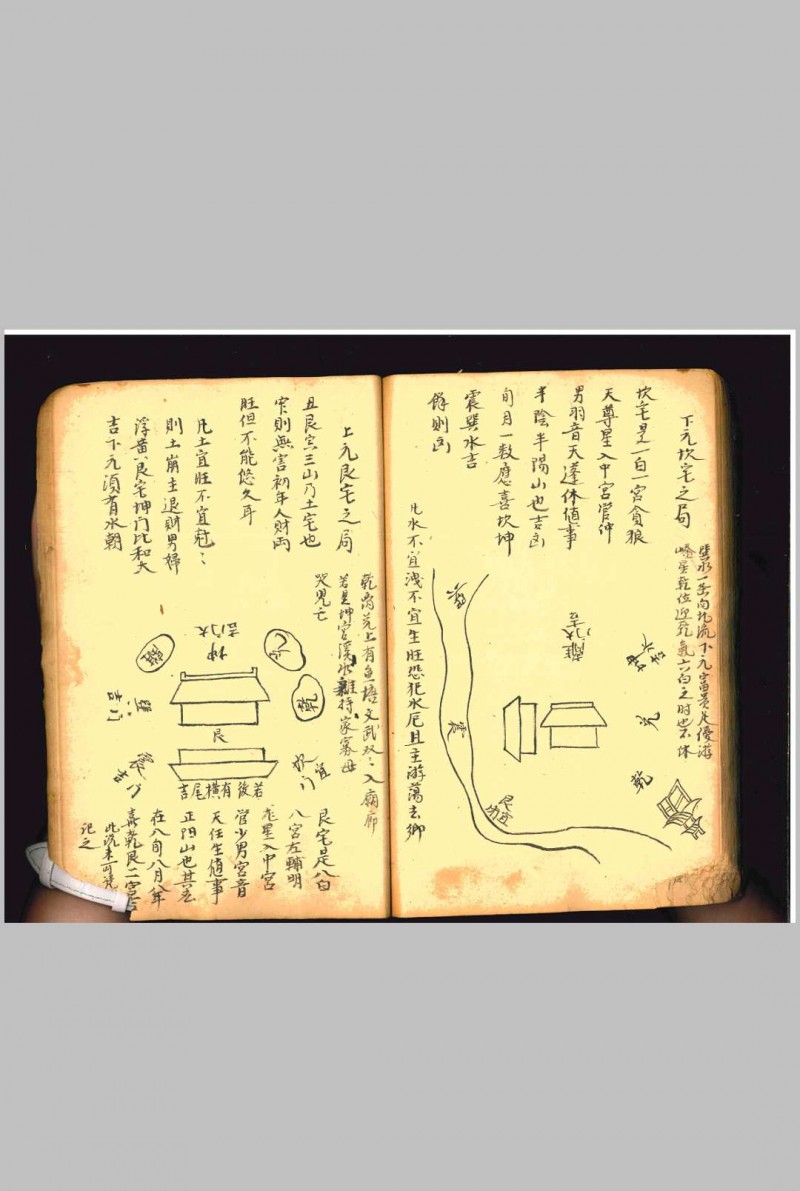 下元坎宅之局
坎宅是一白一宮貪狼
天尊星入中宮管仲
男羽音天蓬休值事
半陰半陽山也吉凶
旬月一数應喜坎坤
震巽水吉
餘則凶
巽水一去向北流下元富貴足優游
嶠星乾位迎乾氣六白之時也不休
凡水不宜洩不宜生旺恐犯水厄且主游蕩去鄉
巽
震
離
門吉
坤水吉
兌
乾
上元艮宅之局
丑艮寅三山乃土宅也
則無害初年人財両
旺但不能悠久耳
凡土宜旺不宜尅：
則土崩主退財男婦
浮黄艮宅坤门比和大
吉下元須有水朝
乾离兌上有魚塘文武双：入廟廊
若是坤宫溪水難持家寡母
哭兒亡
坤
门大吉
兌
乾
離
艮
吉门
若後有横尾吉
艮宅是八白
八宮左輔明
龙星入中宮
管少男宮音
天任生值事
正阳山也其
在八旬八月八年
喜乾艮二宮吉
記之